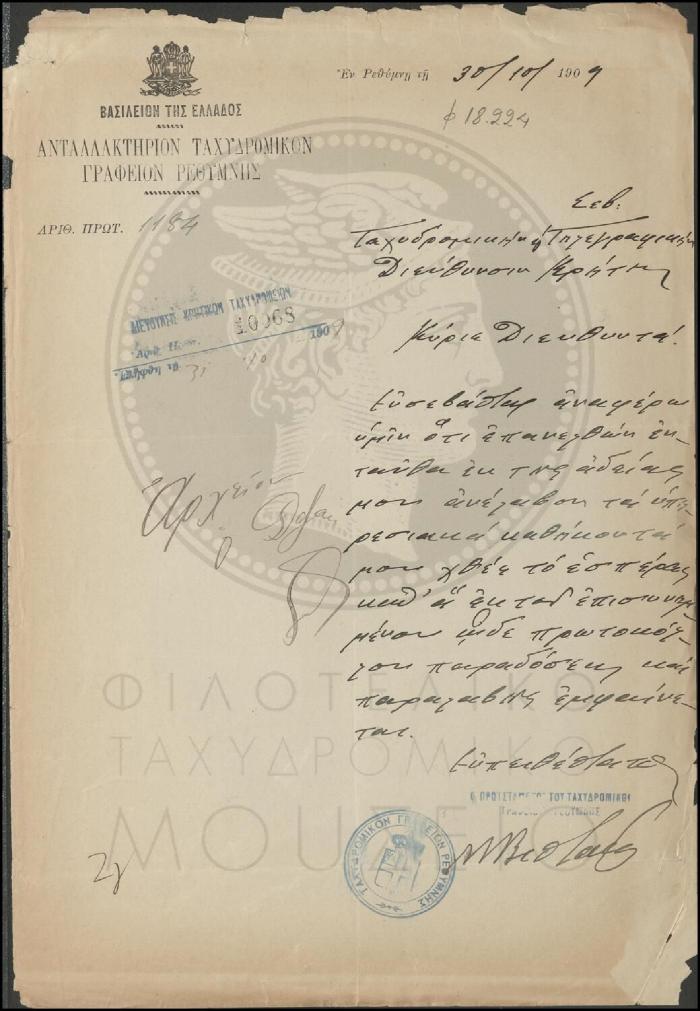 ΒΑΣΙΛΕΙΟΝ ΤΗΣ ΕΛΛΑΔΟΣ
ΑΝΤΑΛΛΑΚΤΗΡΙΟΝ ΤΑΧΥΔΡΟΜΙΚΟΝ
ΓΡΑΦΕΙΟΝ ΡΕΘΥΜΝΗΣ
ΑΡΙΘ. ΠΡΩΤ. 1184
Ἐν Ρεθύμνῃ τῇ 30/10/1909
φ 18.224
ΔΙΕΥΘΥΝΣΙΣ ΚΡΗΤΙΚΩΝ ΤΑΧΥΔΡΟΜΕΙΩΝ
10968
1909
31 10
Ἀρχεῖον
Σεβ:
Ταχυδρομικὴν ἢ Τηλεγραφικὴν
Διεύθυνσιν Κρήτης
Κύριε Διευθυντά.
Εὐσεβάστως ἀναφέρω
ὑμῖν ὅτι ἐπανελθὼν ἐν
ταῦθα ἐκ τῆς ἀδείας
μου ἀνέλαβον τὰ ὑπη
ρεσιακὰ καθήκοντά
μου χθὲς τὸ ἑσπέρας
καθ' ἃ ἐκ τοῦ ἐπισυνημ
μένου ὧδε πρωτοκόλ
λου παραδόσεως καὶ
παραλαβῆς ἐμφαίνε
ται.
Εὐπειθέστατος
Ο ΠΡΟΙΣΤΑΜΕΝΟΣ ΤΟΥ ΤΑΧΥΔΡΟΜΙΚΟΥ
ΓΡΑΦΕΙΟΥ ΡΕΘΥΜΝΗΣ
ΤΑΧΥΔΡΟΜΙΚΟΝ ΓΡΑΦΕΙΟΝ ΡΕΘΥΜΝΗΣ
ΦΙΛΟΤΕΛΙΚΟ
ΤΑΧΥΔΡΟΜΙΚΟ
ΜΟΥΣΕΙΟ